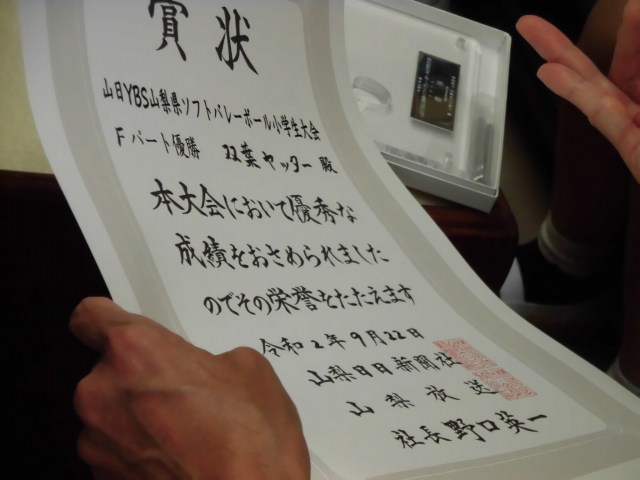 賞状
山日YBS山梨県ソフトバレーボール小学生大会
Fパート優勝 双葉ヤッター殿
本大会において優秀な
成績をおさめられました
のでその栄誉をたたえます
令和2年9月22日
山梨日日新聞社
山梨放送
社長野口英一